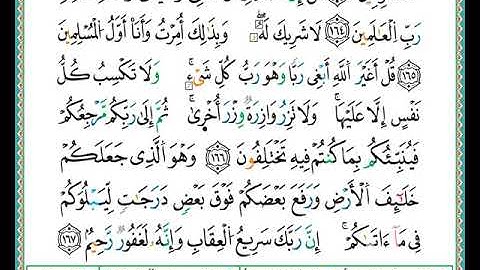 رَبِّ اِ۬لْعَٰلَمِينَ ١٦٤ لَا شَرِيكَ لَهُۥۖ وَبِذَٰلِكَ أُمِرْتُ وَأَنَا أَوَّلُ اُ۬لْمُسْلِمِينَ
١٦٥ قُلْ أَغَيْرَ اَ۬للَّهِ أَبْغِى رَبًّا وَهْوَ رَبُّ كُلِّ شَىْءٍۚ وَلَا تَكْسِبُ كُلُّ
نَفْسٍ إِلَّا عَلَيْهَاۚ وَلَا تَزِرُ وَازِرَةٌ وِزْرَ أُخْرَىٰۚ ثُمَّ إِلَىٰ رَبِّكُم مَّرْجِعُكُمْ
فَيُنَبِّئُكُم بِمَا كُنتُمْ فِيهِ تَخْتَلِفُونَ ١٦٦ وَهْوَ اَ۬لَّذِى جَعَلَكُمْ
خَلَٰٓئِفَ اَ۬لْأَرْضِ وَرَفَعَ بَعْضَكُمْ فَوْقَ بَعْضٍ دَرَجَٰتٍ لِّيَبْلُوَكُمْ
فِى مَآ ءَاتَىٰكُمْۗ إِنَّ رَبَّكَ سَرِيعُ اُ۬لْعِقَابِ وَإِنَّهُۥ لَغَفُورٌ رَّحِيمٌ ١٦٧